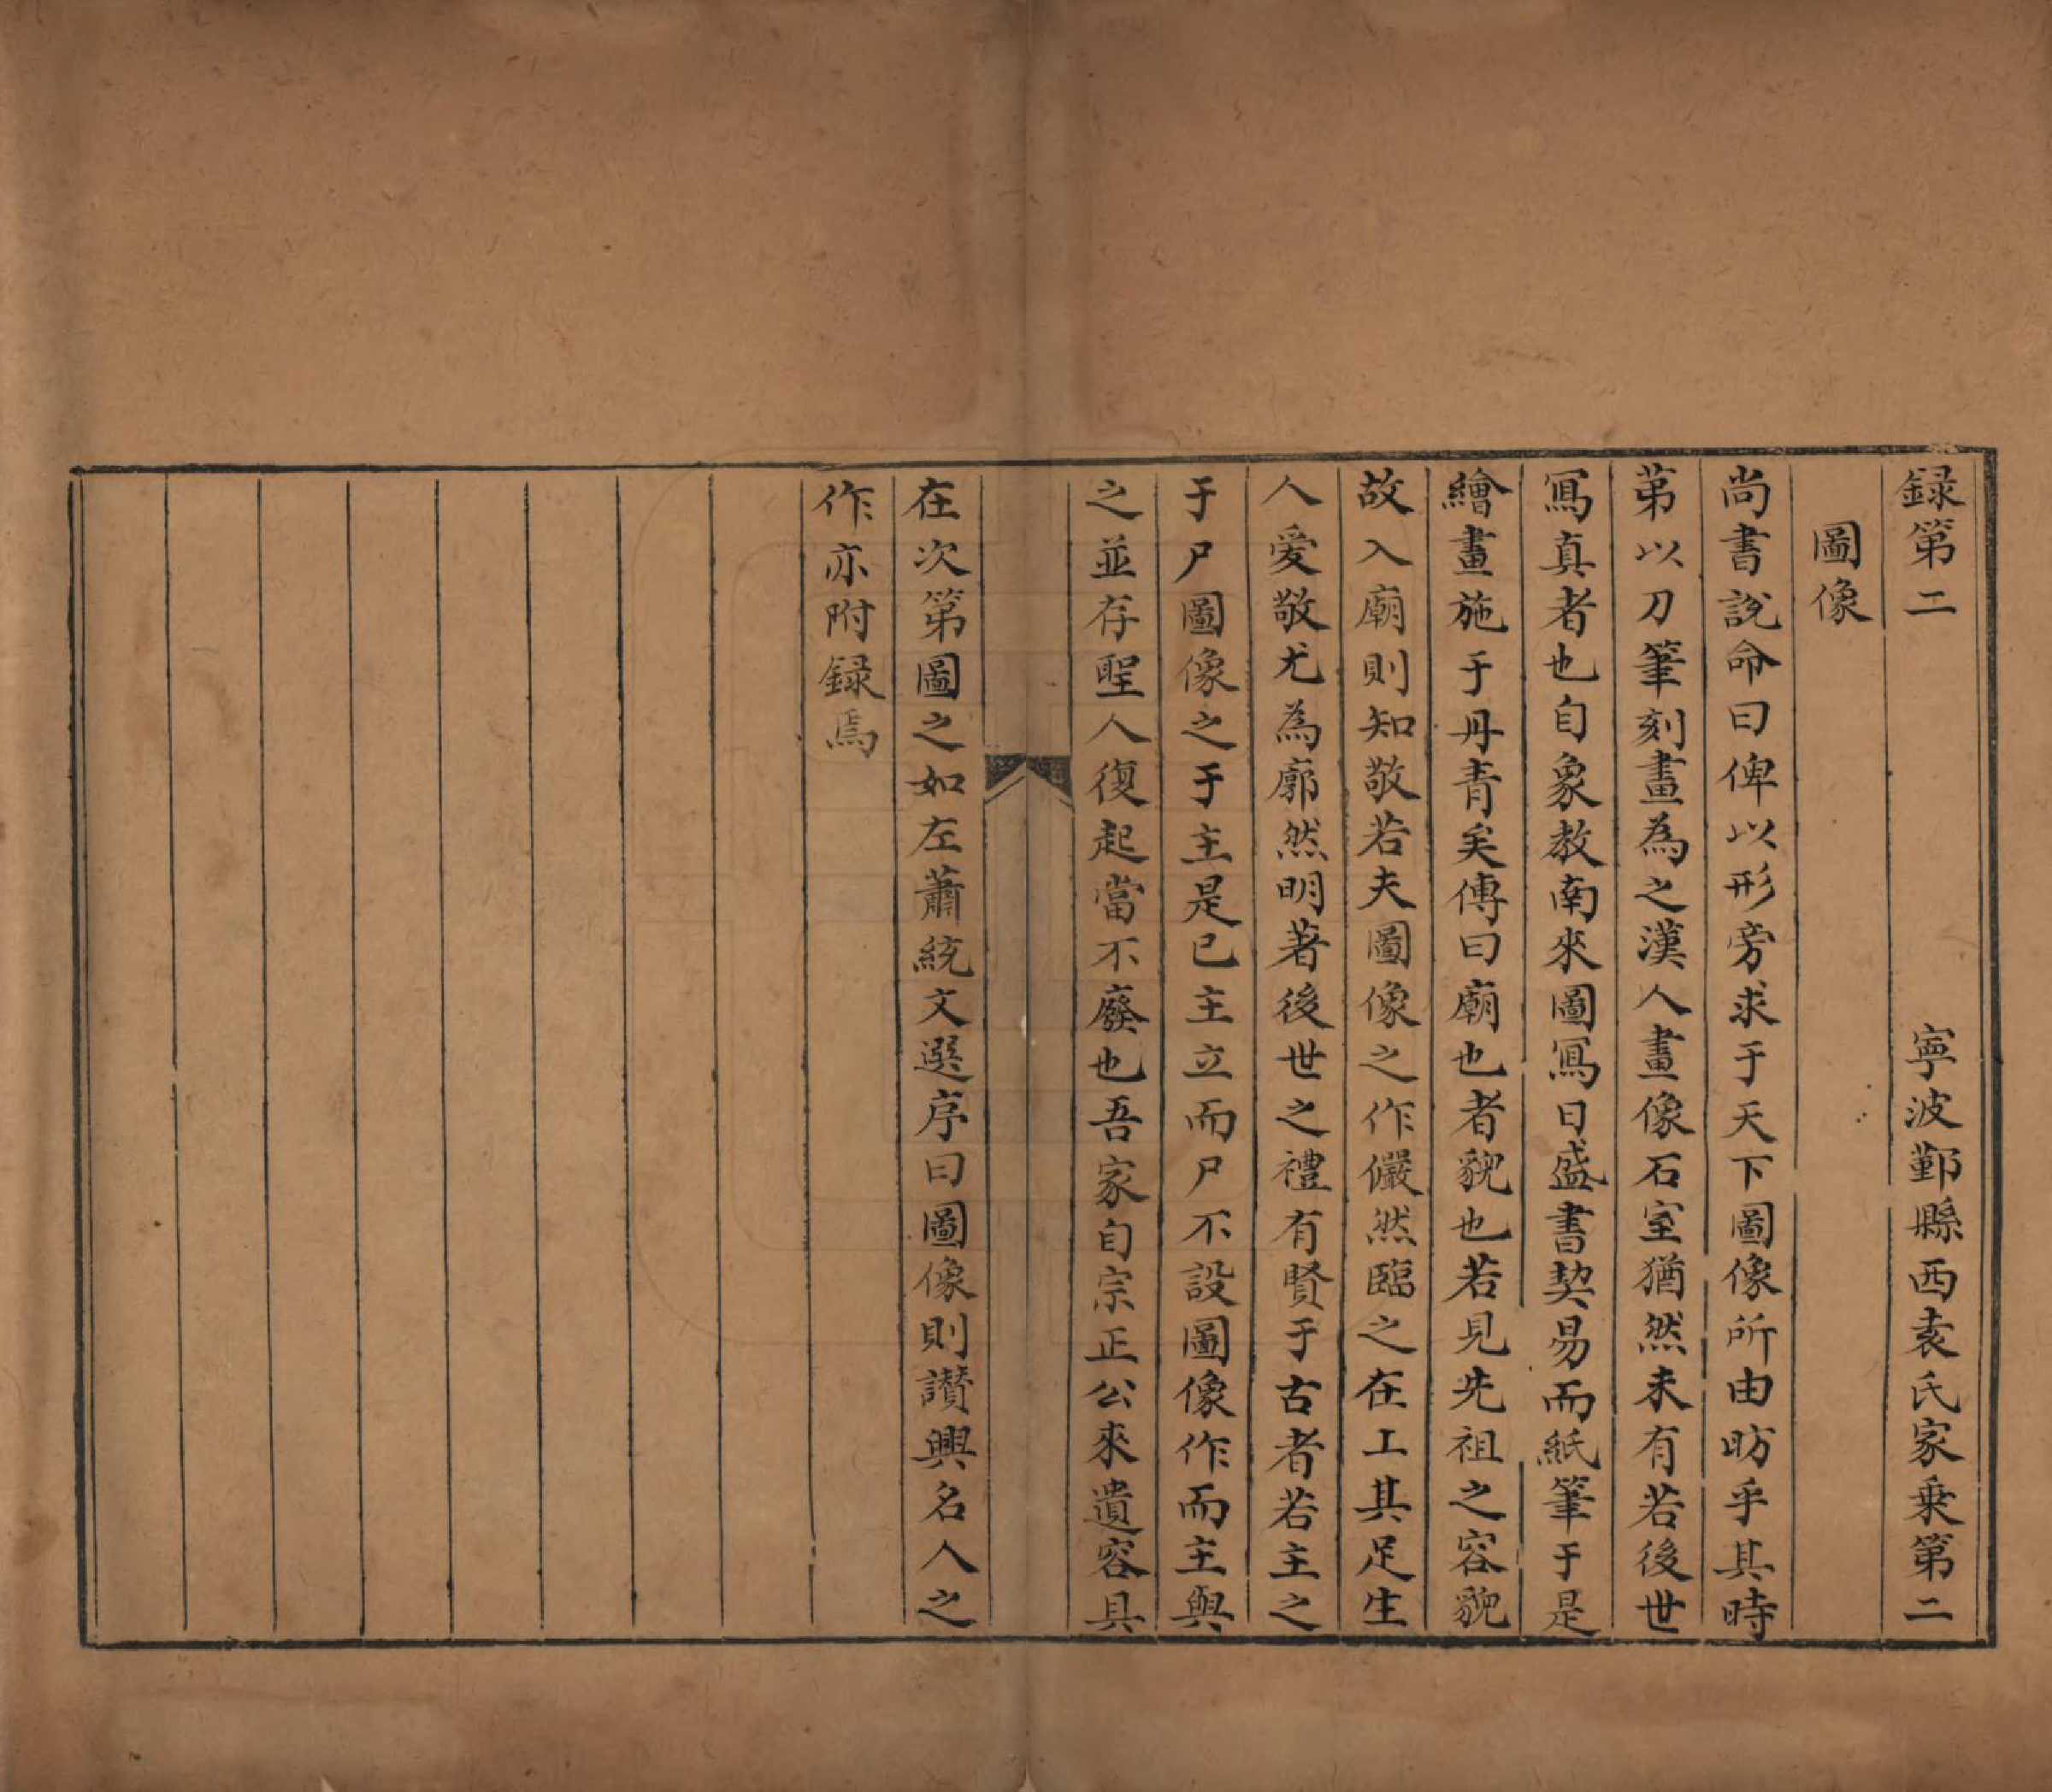 録第二　寧波鄞縣西袁氏家乗第二
圖像
尚書說命曰俾以形旁求于天下圖像所由昉乎其時
第以刀筆刻畫為之漢人畫像石室猶然未有若後世
寫真者也自象教南來圖寫日盛書契易而紙筆于是
繪畫施于丹青矣傳曰廟也者貌也若見先祖之容貌
故入廟則知敬若夫圖像之作儼然臨之在工其足生
人愛敬尤為廓然明著後世之禮有賢于古者若主之
于尸圖像之于主是已主立而尸不設圖像作而主與
之並存聖人復起當不廢也吾家自宗正公來遺容具
在次第圖之如左蕭統文選序曰圖像則讃興名人之
作亦附録焉